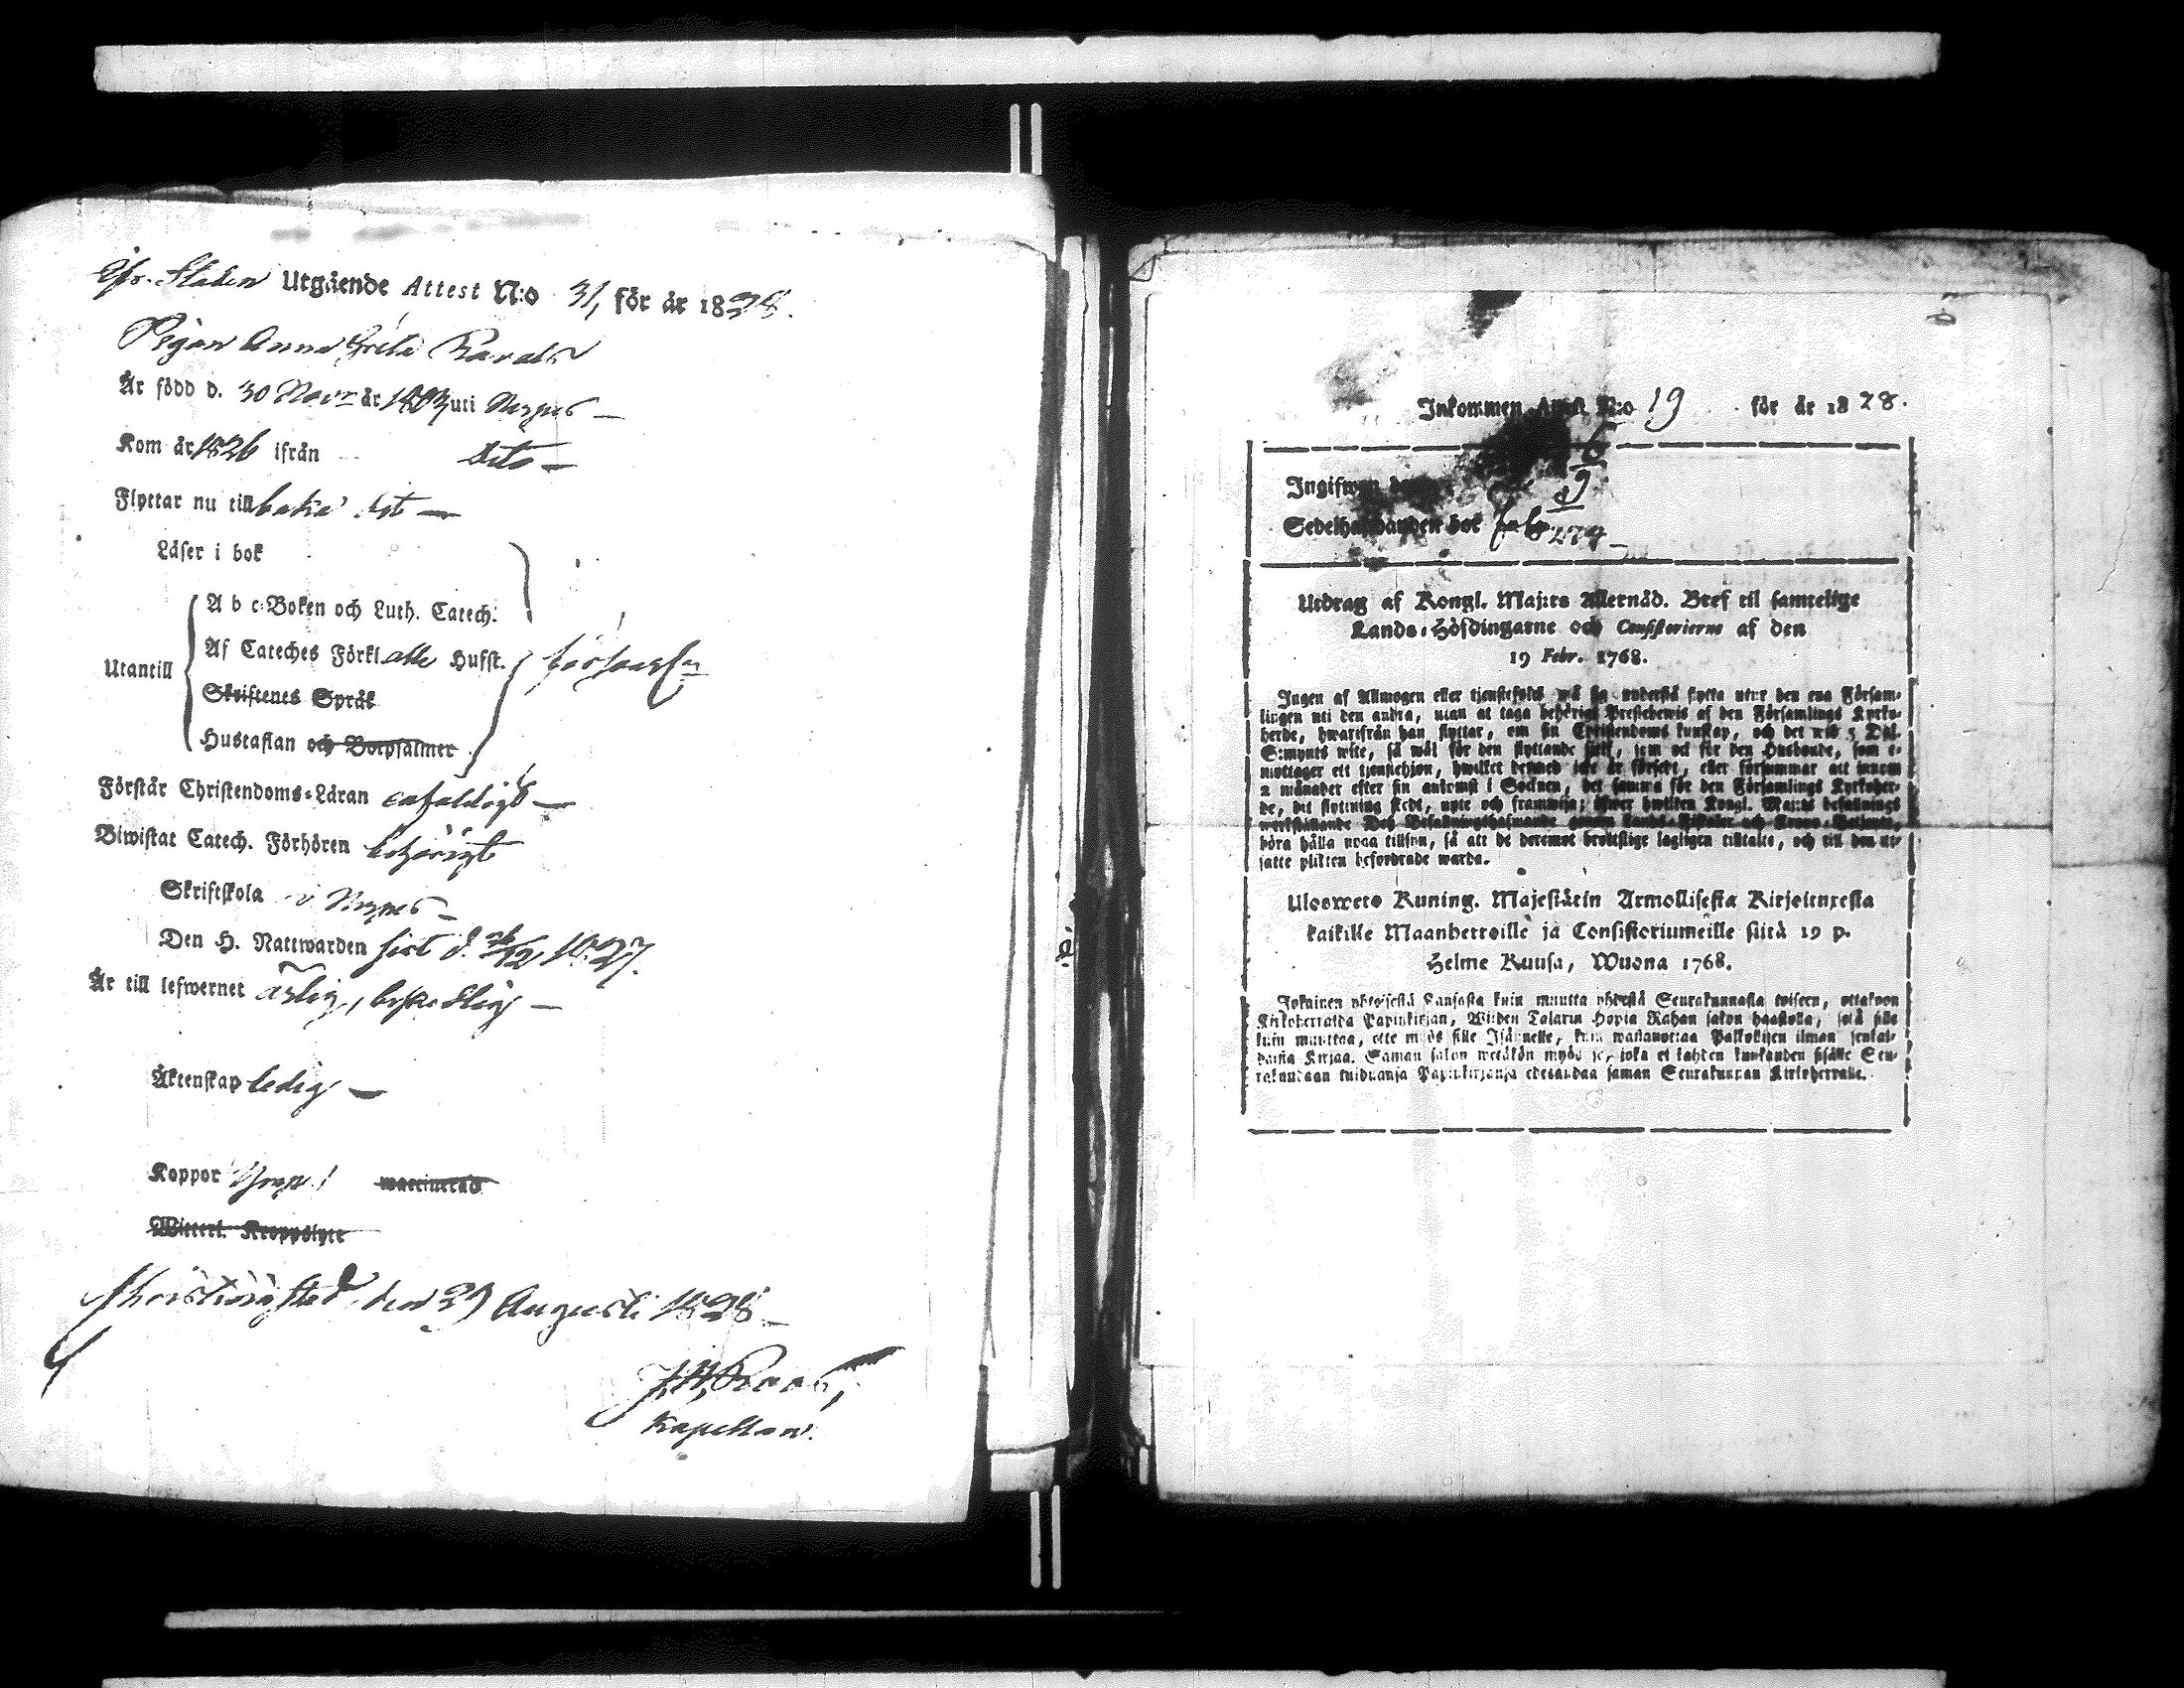 Chr. Staden Utgående Attest N:o 31, för år 1828.
Pigan Anna Greta
Är född d. 30 Novr år 1803 uti Nerpes
Kom år 1826 ifrån dito
Flyttar nu till baka dit
Läser i bok
A b c-Boken och Luth. Catech.
Utantill
Af Cateches Förkl. alla Husst. försvarl:n
Skriftenes Språk
Hustaflan och Botpsalmer
Förstår Christendoms-Läran enfaldigt
Biwistat Catech. Förhören behörigt
Skriftskola i Nerpes
Den H. Nattwarden sist d. 26/12 1827.
Är till lefwernet ärlig, beskedlig
Äktenskap ledig
Koppor waccinerad
Witterl. Kroppslyte
Christinæstad, den 29 Augusti 1828
J. H. Roos,
Kapellan.
Inkommen Attest N:o 19 för år 1828.
Ingifwen den 6/9
Sedelhafwanden bok fol. 279
Utdrag af Kongl. Maj:ts Allernåd. Bref til samtelige
Lands-Höfdingarne och Consistorierne af den
19 Febr. 1768.
Ingen af Allmogen eller tjenstefolks må sig understå flytta utur den ena Försam-
lingen uti den andra, utan at taga behörigt Prestebewis af den Församlings Kyrko-
herde, hwarifrån han flyttar, om sin Christendoms kunskap, och det wid 5 Dal.
S:mynts wite, så wäl för den flyttande sjelf, som ock för den Husbonde, som e-
mottager ett tjenstehjon, hwilket dermed icke är försedt, eller försummar att innom
2 månader efter sin ankomst i Socknen, det samma för den Församlings Kyrkoher-
de, dit flyttning skedt, upte och framwisa; öfwer hwilken Kongl. Maj:ts befallnings
werkställande Dess Befallningshafwande genom Lands-Fiskaler och Krono-Betjente,
böra hålla noga tillsyn, så att de deremot brottslige lagligen tilltalte, och till den ut-
satte plikten befordrade warda.
Ulosweto Kuning. Majestätin Armollisesta Kirjoituxesta
kaikille Maanherroille ja Consistoriumeille siitä 19 p.
Helme Kuusa, Wuona 1768.
Jokainen yhteisestä Kansasta kuin muutta yhdestä Seurakunnasta toiseen, ottakoon
Kirkoherralda Papinkirjan, Wiiden Talarin Hopia Rahan sakon haastolla, sekä sille
kuin muuttaa, ette myös sille Isännelle, kuin wastanottaa Palkollisen ilman senkal-
daista Kirjaa. Saman sakon wetäkön myös se, joka ei kahden kuukauden sisälle Seu-
rakundaan tulduansa Papinkirjansa edesandaa saman Seurakunnan Kirkoherralle.